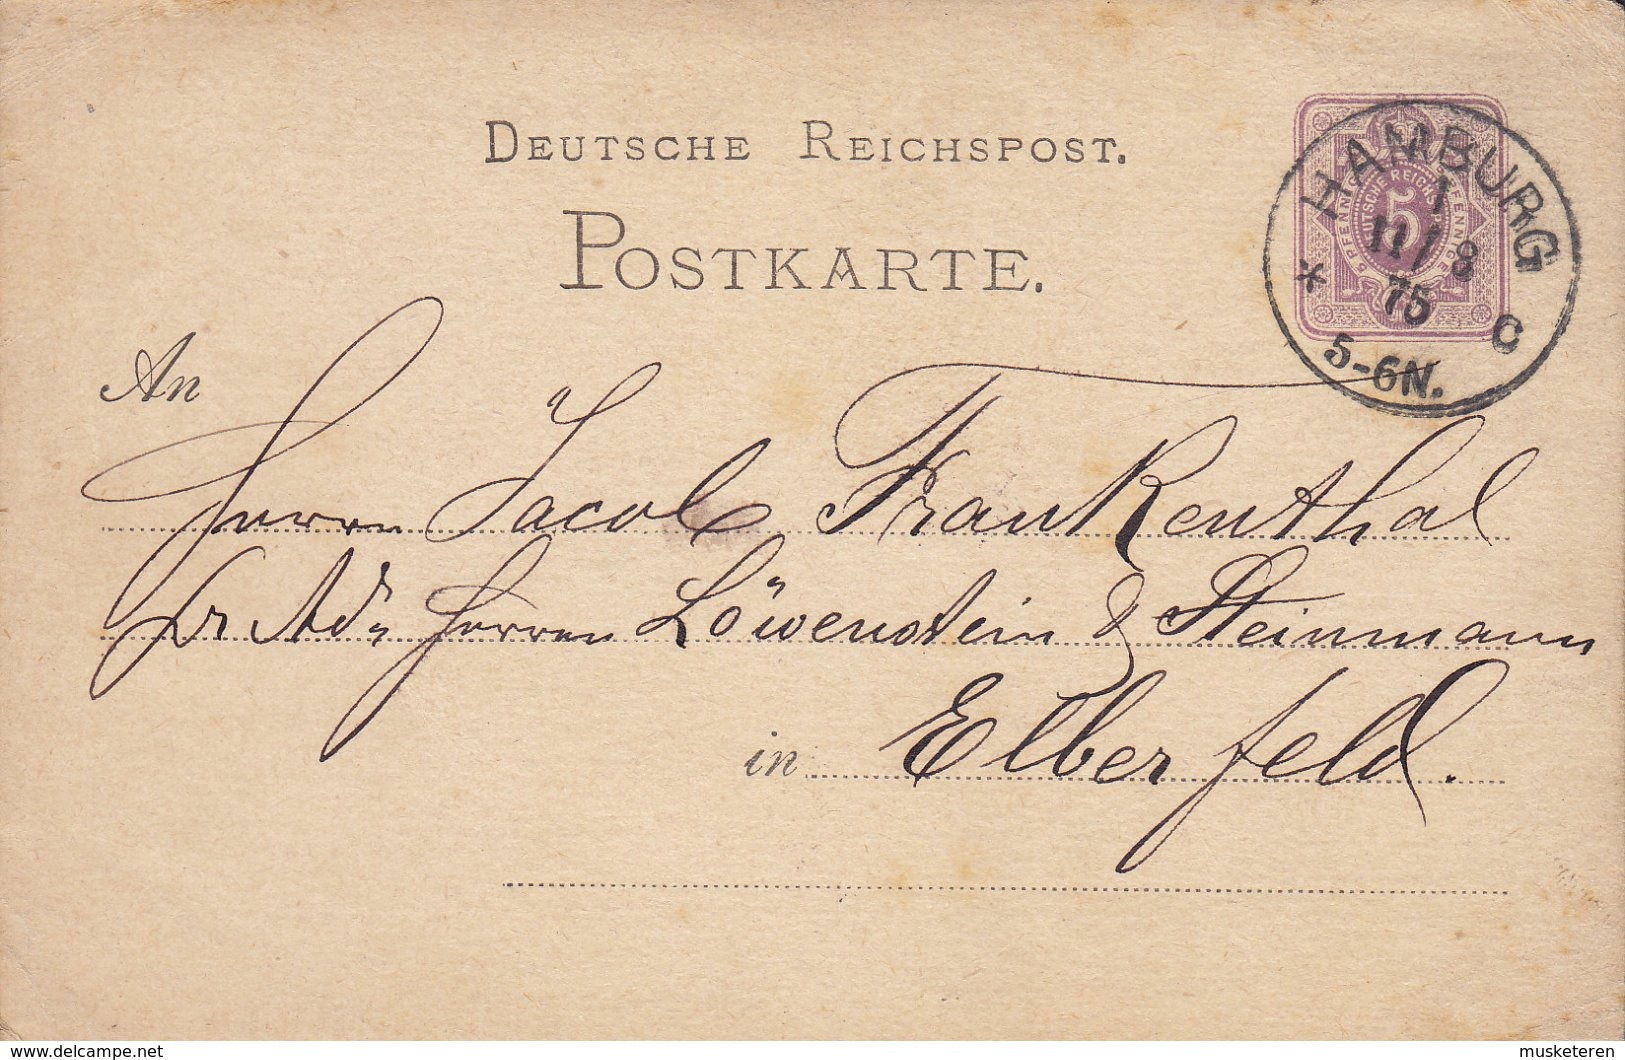 DEUTSCHE REICHSPOST.
POSTKARTE.
HAMBURG
1
11/8
75
* C
5-6N.
5 PFENNIG
DEUTSCHE REICHSPOST
5
PFENNIG 5
An
Herrn Jacob Frankenthal
pr Adr Herren Löwenstein & Steinmann
in Elberfeld.
delcampe.net
musketeren